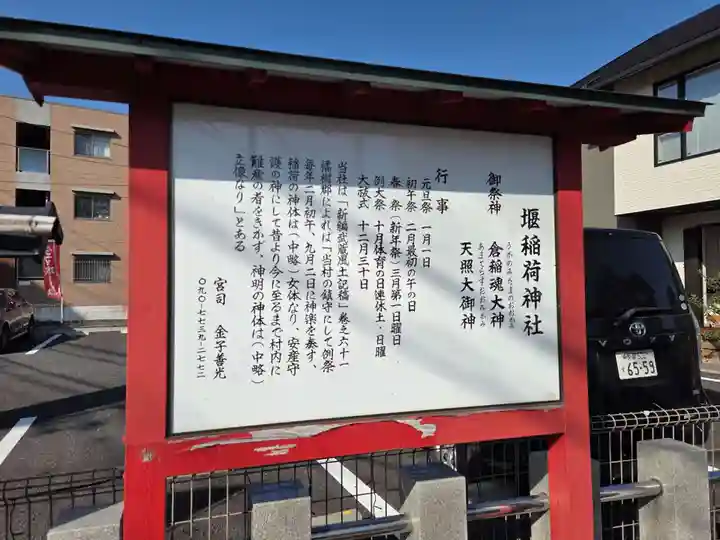 堰稲荷神社
御祭神
うかのみたまのおおかみ
倉稲魂大神
あまてらすおおみかみ
天照大御神
行事
元旦祭 一月一日
初午祭 二月最初の午の日
春祭(新年祭)三月第一日曜日
例大祭 十月体育の日連休土・日曜
大祓式 十二月三十日
当社は「新編武蔵風土記稿」巻之六十一
橘樹郡によれば「当村の鎮守にして例祭
毎年二月初午、九月二日に神楽を奏す、
稲荷の神体は(中略)女体なり、安産守
護の神にして昔より今に至るまで村内に
難産の者をきかず、神明の神体は(中略)
立像なり」とある
宮司 金子善光
〇九〇-七七三九-二七七二
65-59